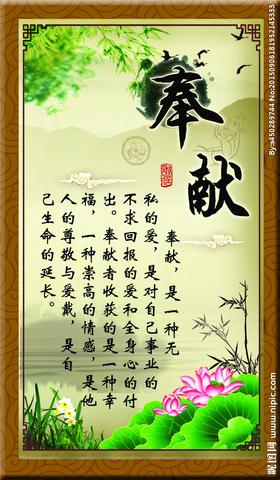 奉献
奉献，是一种无
私的爱，是对自己事业的
不求回报的爱和全身心的付
出。奉献者收获的是一种幸
福，一种崇高的情感，是他
人的尊敬与爱戴，是自
己生命的延长。
By:s450289744 No:20150906181952145333
昵图网 www.nipic.com